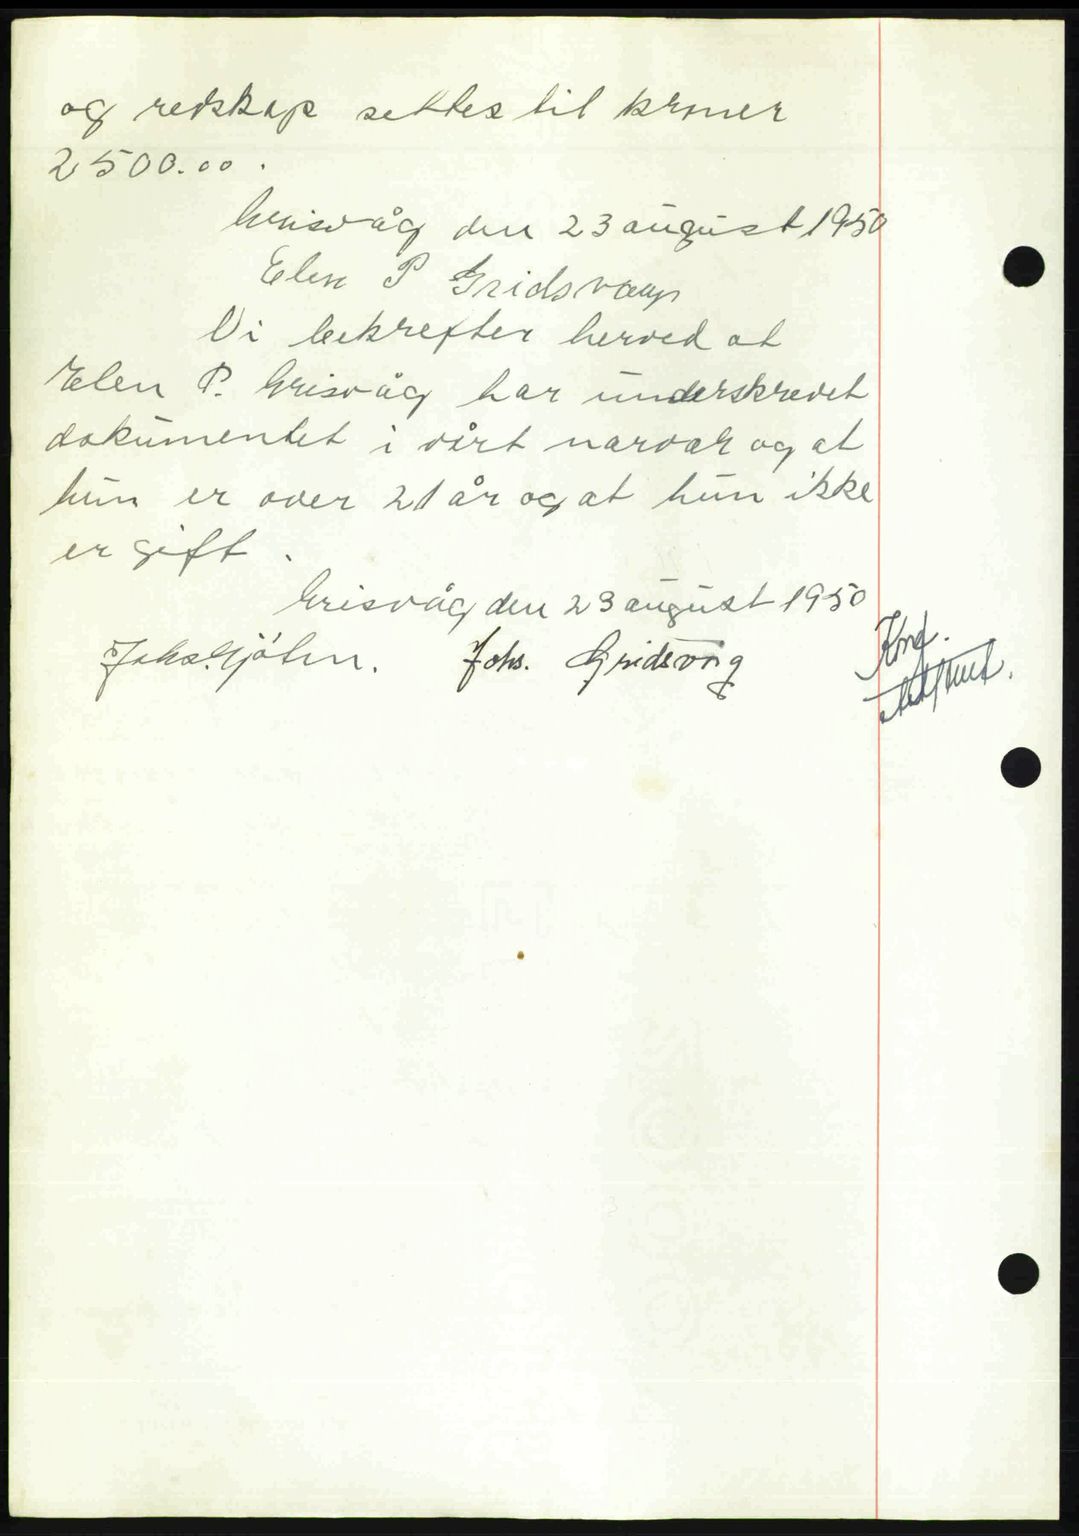 og redskap settes til kroner
2500.00.
Grisvåg den 23 august 1950
Elen P Gridsvaag
Vi bekrefter herved at
Elen P. Grisvåg har underskrevet
dokumentet i vårt narvar og at
hun er over 21 år og at hun ikke
er gift.
Grisvåg den 23 august 1950
Johs. Gjølen. Johs. Gridsvåg